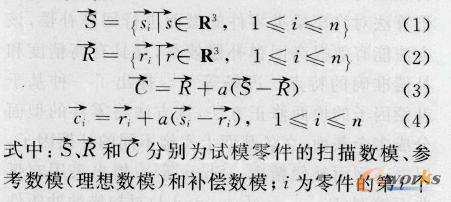 S⃗ = {s⃗ᵢ | s⃗ ∈ R³, 1 ≤ i ≤ n} (1)
R⃗ = {r⃗ᵢ | r⃗ ∈ R³, 1 ≤ i ≤ n} (2)
C⃗ = R⃗ + a(S⃗ − R⃗) (3)
c⃗ᵢ = r⃗ᵢ + a(s⃗ᵢ − r⃗ᵢ), 1 ≤ i ≤ n (4)
式中:S⃗、R⃗和C⃗ 分别为试模零件的扫描数模、参
考数模(理想数模)和补偿数模;i 为零件的第 i 个